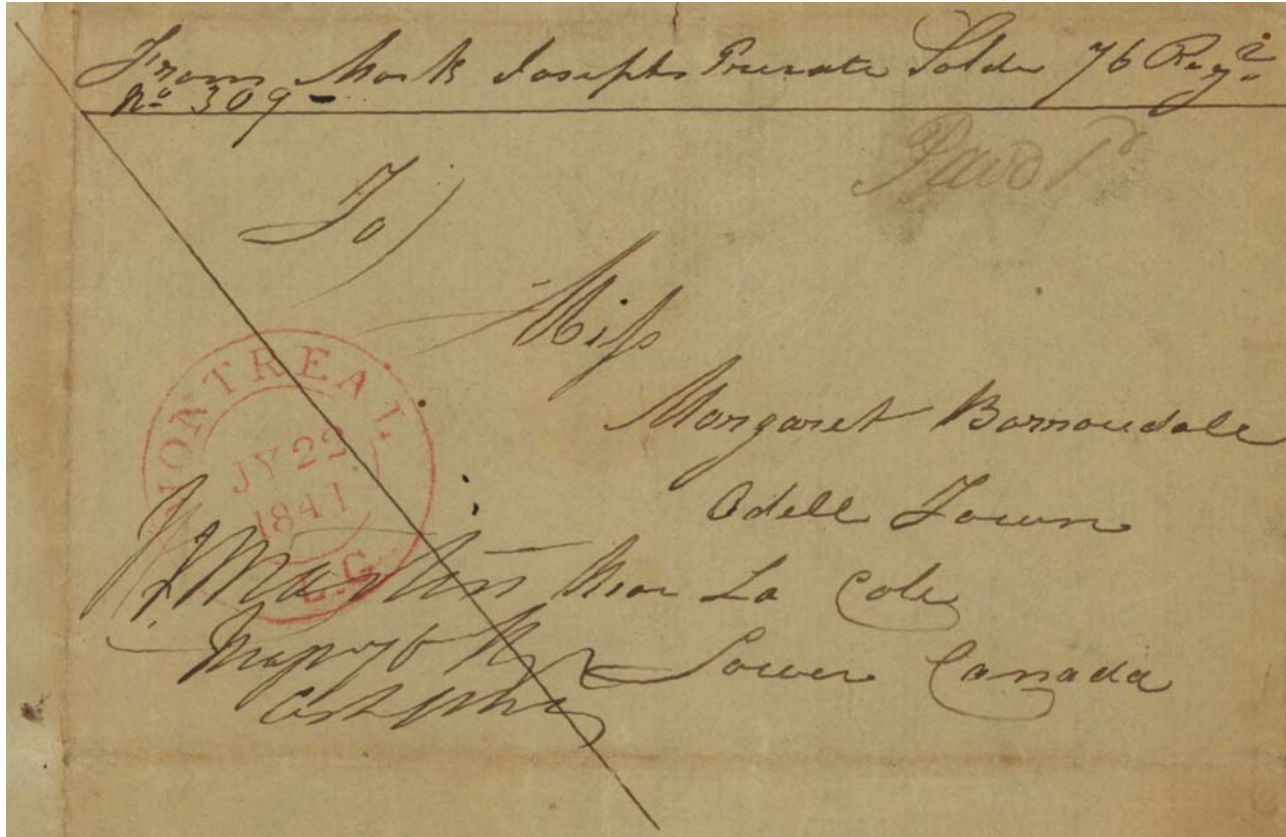 From Mark Josephs Private Solder 76 Regt
No 309
Paid 1d
To
Miss
Margaret Barnoudale
Odell Town
Near La Cole
Lower Canada
MONTREAL
JY 22
1841
L.C
Martin